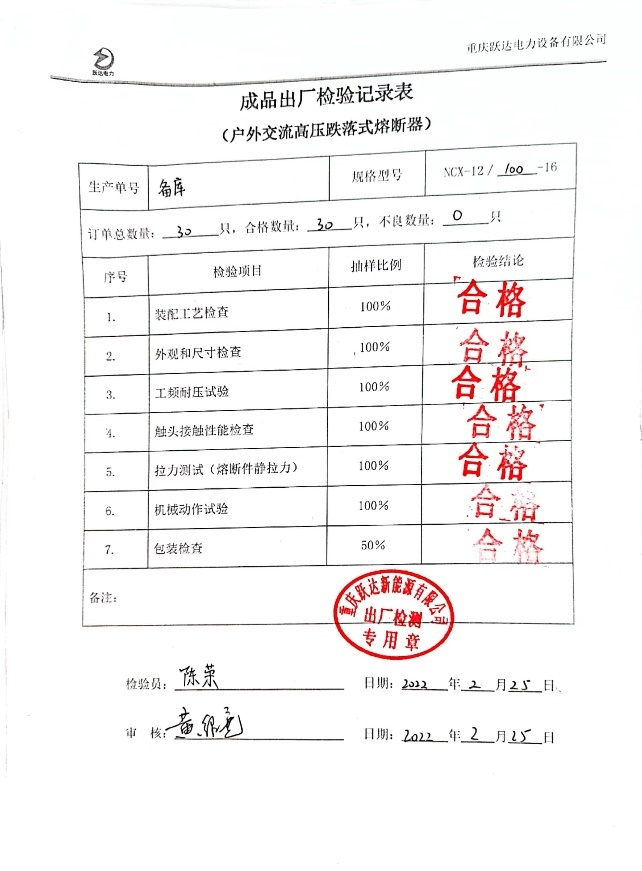 跃达电力
重庆跃达电力设备有限公司
成品出厂检验记录表
（户外交流高压跌落式熔断器）
生产单号 备库 规格型号 NCX-12/100-16
订单总数量：30只，合格数量：30只，不良数量：0只
序号 检验项目 抽样比例 检验结论
1. 装配工艺检查 100% 合格
2. 外观和尺寸检查 100% 合格
3. 工频耐压试验 100% 合格
4. 触头接触性能检查 100% 合格
5. 拉力测试（熔断件静拉力） 100% 合格
6. 机械动作试验 100% 合格
7. 包装检查 50% 合格
备注：
重庆跃达新能源有限公司
出厂检测
专用章
检验员：陈荣 日期：2022年2月25日
审 核：黄 日期：2022年2月25日